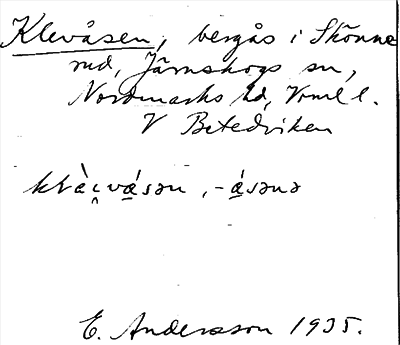 Klevåsen, bergås i Skönne
rud, Järnskogs sn,
Nordmarks hd, Vrml l.
V Betedviken
klài̯vá̱sən, -á̱sənə
E. Andersson 1935.